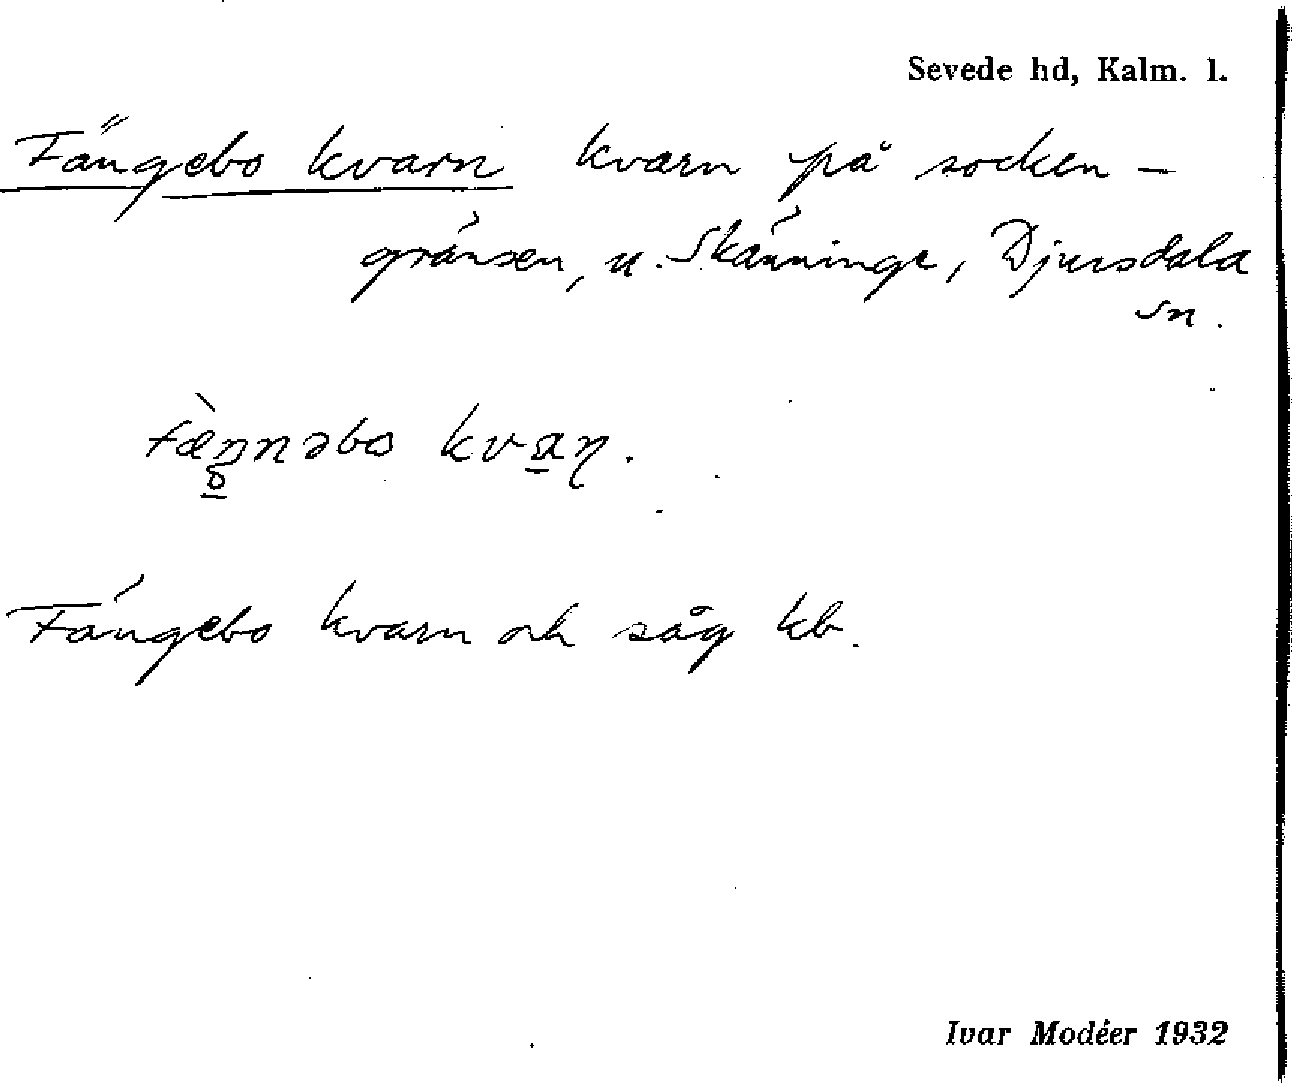 Sevede hd, Kalm. l.
Fängebo kvarn kvarn på socken-
gränsen, u. Skänninge, Djursdala
sn.
kvaɳ.
Fängebo kvarn och såg kb.
Ivar Modéer 1932